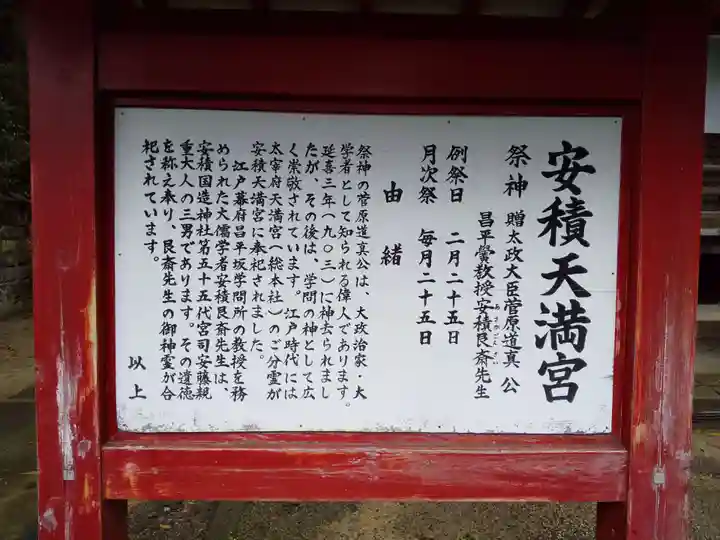 安積天満宮
祭神 贈太政大臣菅原道真公
昌平黌教授安積艮斎先生
あさかごんさい
例祭日 二月二十五日
月次祭 毎月二十五日
由緒
祭神の菅原道真公は、大政治家・大
学者として知られる偉人であります。
延喜三年(九〇三)に神去られまし
たが、その後は、学問の神として広
く崇敬されています。江戸時代には
太宰府天満宮(総本社)のご分霊が
安積天満宮に奉祀されました。
江戸幕府昌平坂学問所の教授を務
められた大儒学者安積艮斎先生は、
安積国造神社第五十五代宮司安藤親
重大人の三男であります。その遺徳
を称え奉り、艮斎先生の御神霊が合
祀されています。
以上